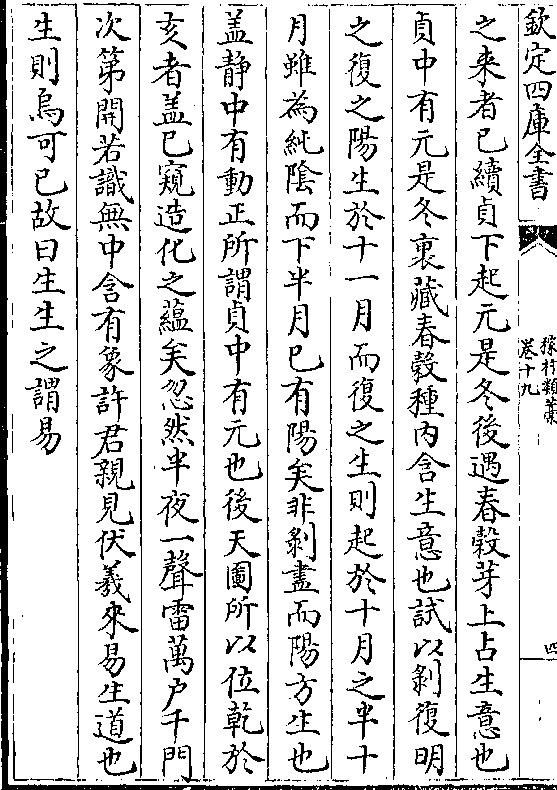 欽定四庫全書
稼村類藁
卷十九
四
之来者已續貞下起元是冬後遇春榖芽上占生意也
貞中有元是冬裏藏春榖種内含生意也試以剝復明
之復之陽生於十一月而復之生則起於十月之半十
月雖為純隂而下半月已有陽矣非剝盡而陽方生也
盖静中有動正所謂貞中有元也後天圖所以位乾於
亥者盖已窺造化之藴矣忽然半夜一聲雷萬户千門
次第開若識無中含有象許君親見伏羲來易生道也
生則烏可已故曰生生之謂易